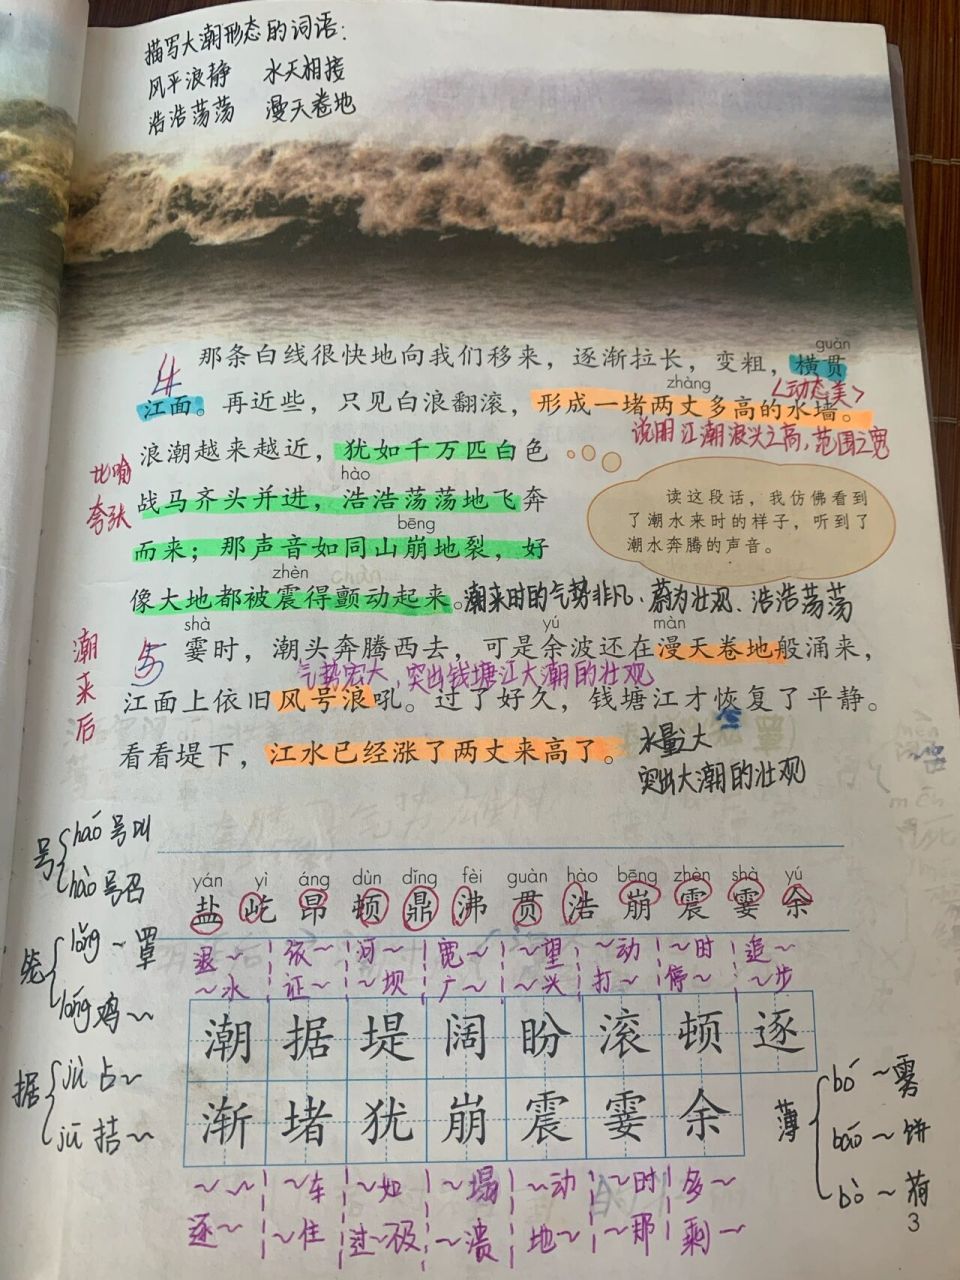 描写大潮形态的词语：
风平浪静 水天相接
浩浩荡荡 漫天卷地
guàn
4 那条白线很快地向我们移来，逐渐拉长，变粗，横贯
zhàng
<动态美>
江面。再近些，只见白浪翻滚，形成一堵两丈多高的水墙。
说明江潮浪头之高，范围之宽
浪潮越来越近，犹如千万匹白色
比喻
夸张
hào
战马齐头并进，浩浩荡荡地飞奔
bēng
而来；那声音如同山崩地裂，好
zhèn chàn
像大地都被震得颤动起来。潮来时的气势非凡、蔚为壮观、浩浩荡荡
读这段话，我仿佛看到
了潮水来时的样子，听到了
潮水奔腾的声音。
潮来后
shà yú màn
5 霎时，潮头奔腾西去，可是余波还在漫天卷地般涌来，
气势宏大，突出钱塘江大潮的壮观
江面上依旧风号浪吼。过了好久，钱塘江才恢复了平静。
看看堤下，江水已经涨了两丈来高了。
水量大
突出大潮的壮观
号 háo 号叫
hào 号召
笼 lǒng ~罩
lóng 鸡~
据 jù 占~
jū 拮~
yán yì áng dùn dǐng fèi guàn hào bēng zhèn shà yú
盐 屹 昂 顿 鼎 沸 贯 浩 崩 震 霎 余
退~ 依~ 河~ 宽~ ~望 ~动 ~时 追~
~水 证~ ~坝 广~ ~兴 打~ 停~ ~步
潮 据 堤 阔 盼 滚 顿 逐
渐 堵 犹 崩 震 霎 余
~~ ~车 ~如 ~塌 ~动 ~时 多~
逐~ ~住 过~ ~溃 地~ ~那 剩~
薄 bó ~雾
báo ~饼
bò ~荷
3